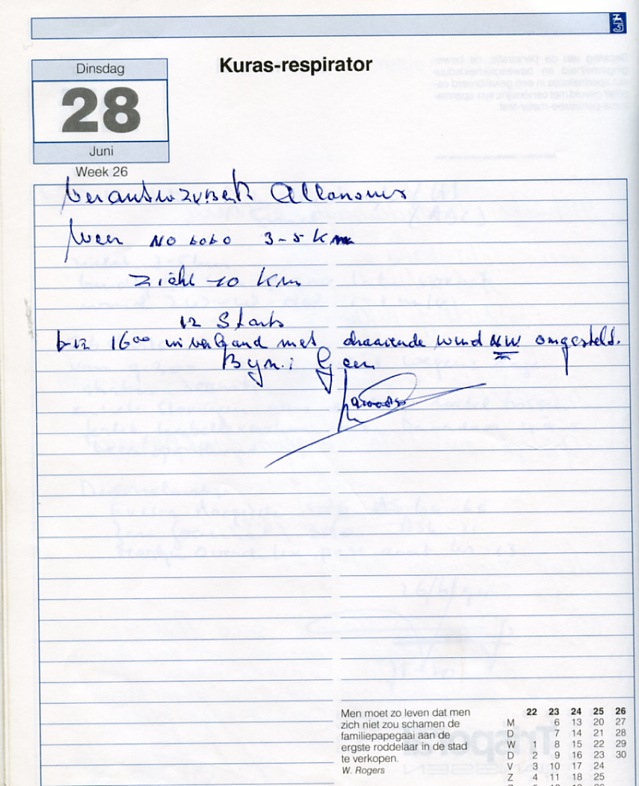 Dinsdag
28
Juni
Week 26
Kuras-respirator
Weer NO 6060 3-5 Km
Zicht 10 Km
12 Starts
1600 in verband met draaiende wind NW omgesteld.
Byz.: Geen
Men moet zo leven dat men
zich niet zou schamen de
familiepapegaai aan de
ergste roddelaar in de stad
te verkopen.
W. Rogers
22 23 24 25 26
M 6 13 20 27
D 7 14 21 28
W 1 8 15 22 29
D 2 9 16 23 30
V 3 10 17 24
Z 4 11 18 25